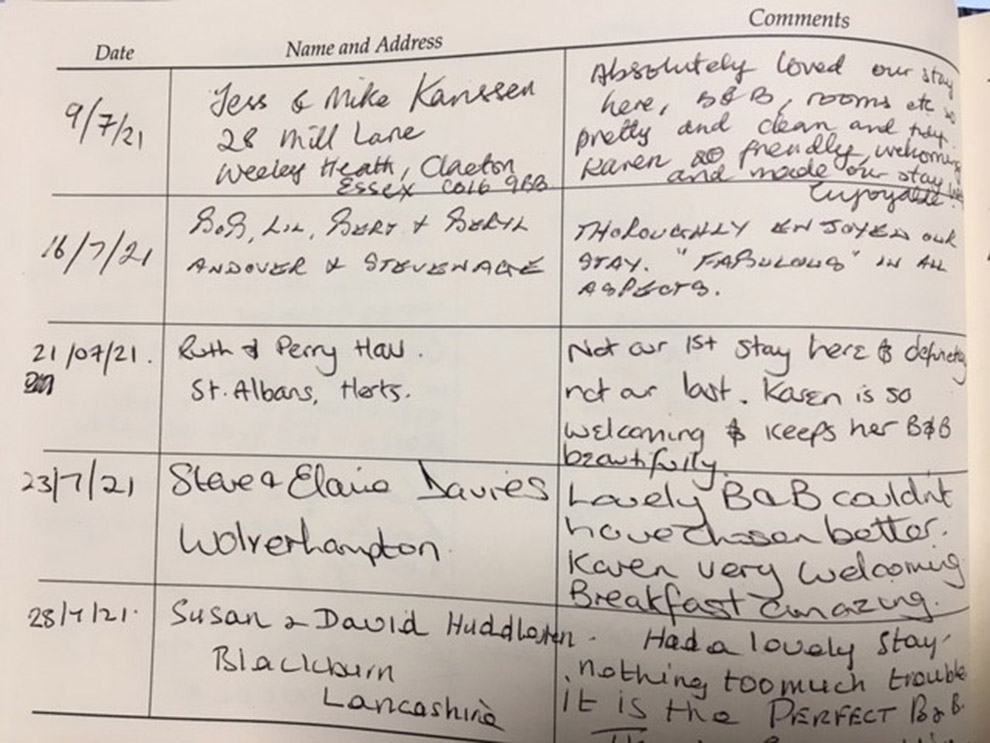 Date Name and Address Comments
9/7/21
Jess & Mike Kanssen
28 Mill Lane
Weeley Heath, Clacton
Essex CO16 9BB
Absolutely loved our stay
here, B&B, rooms etc so
pretty and clean and tidy.
Karen so friendly, welcoming
and made our stay
Enjoyable.
16/7/21
BOB, LIL, BERT & BERYL
ANDOVER & STEVENAGE
THOROUGHLY ENJOYED OUR
STAY. "FABULOUS" IN ALL
ASPECTS.
21/07/21.
Ruth & Perry Hall.
St. Albans, Herts.
Not our 1st stay here & definitely
not our last. Karen is so
welcoming & keeps her B&B
beautifully.
23/7/21
Steve & Elaine Davies
Wolverhampton.
Lovely B&B couldn't
have chosen better.
Karen very welcoming
Breakfast amazing.
28/7/21.
Susan & David Huddleston.
Blackburn
Lancashire
Had a lovely stay
nothing too much trouble
it is the PERFECT B&B.